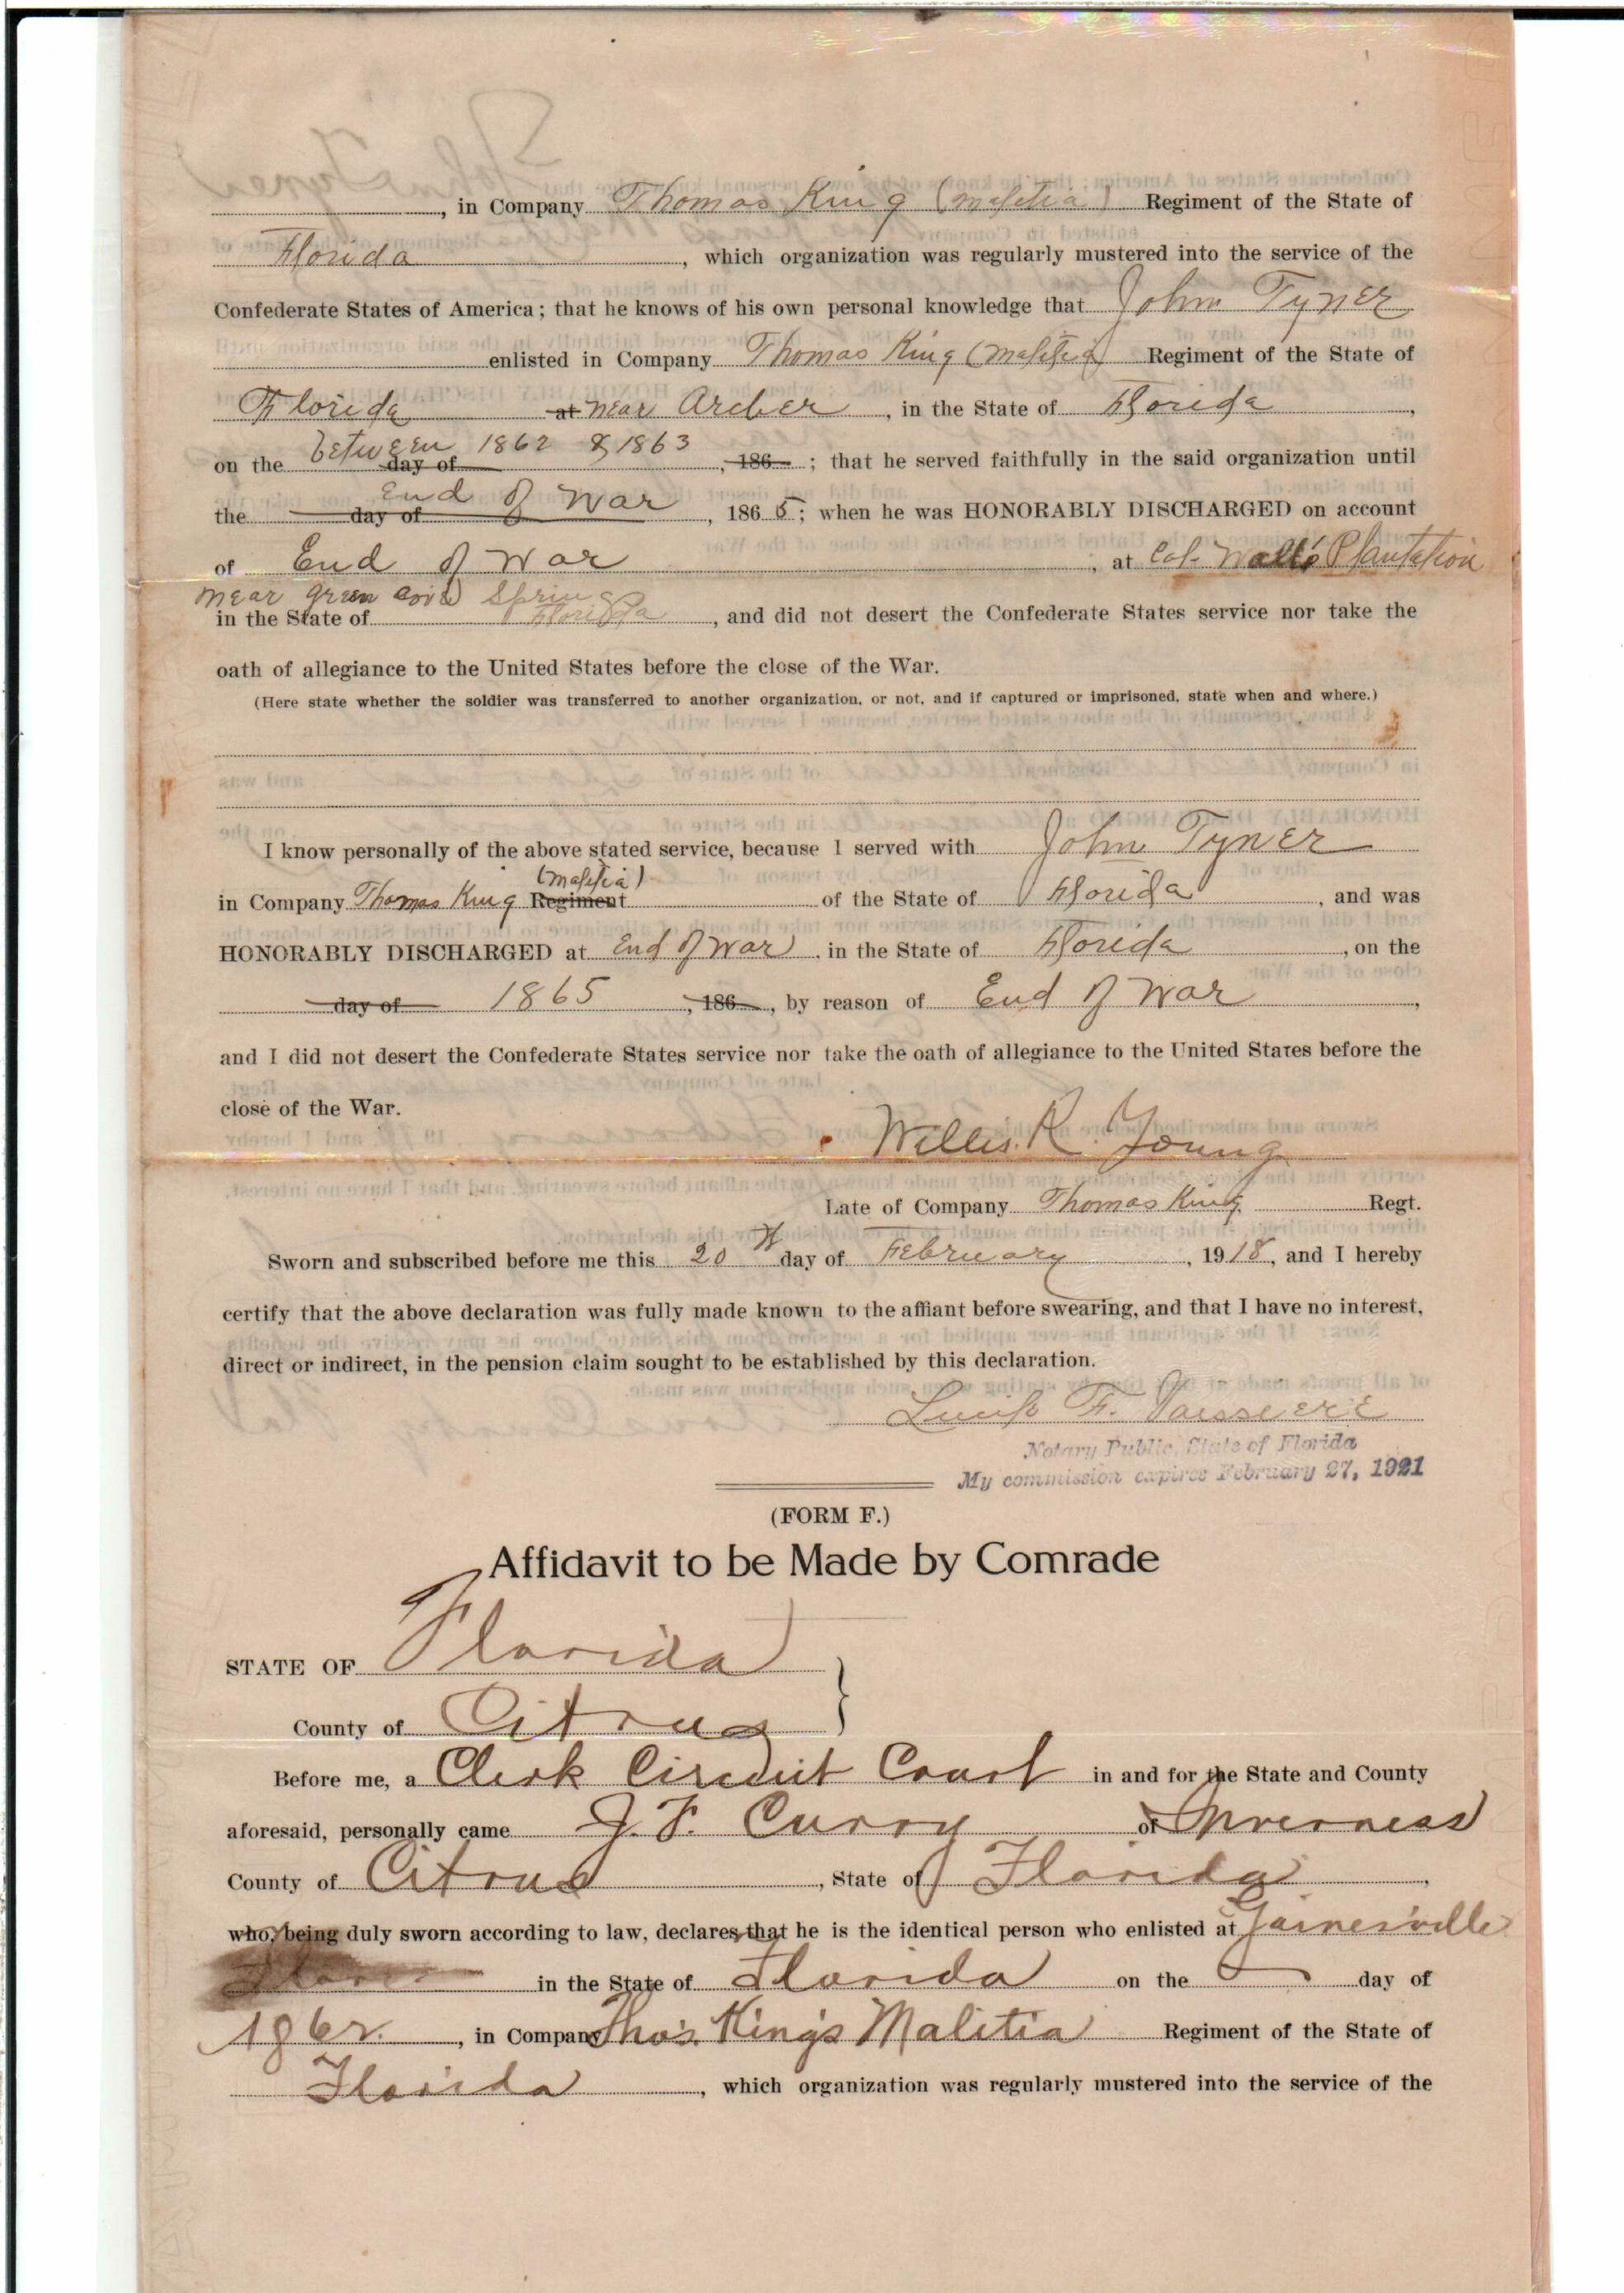 , in Company Thomas King (Malitia) Regiment of the State of
Florida, which organization was regularly mustered into the service of the
Confederate States of America; that he knows of his own personal knowledge that John Tyner
enlisted in Company Thomas King (Malitia) Regiment of the State of
Florida at near Archer, in the State of Florida,
on the between 1862 & 1863 day of, 186 ; that he served faithfully in the said organization until
the day of End of War, 1865; when he was HONORABLY DISCHARGED on account
of End of War, at Col. Wall's Plantation
near Green Cove Spring
in the State of Florida, and did not desert the Confederate States service nor take the
oath of allegiance to the United States before the close of the War.
(Here state whether the soldier was transferred to another organization, or not, and if captured or imprisoned, state when and where.)
I know personally of the above stated service, because I served with John Tyner
(Malitia)
in Company Thomas King Regiment of the State of Florida, and was
HONORABLY DISCHARGED at End of War, in the State of Florida, on the
day of 1865, 186 , by reason of End of War,
and I did not desert the Confederate States service nor take the oath of allegiance to the United States before the
close of the War.
Willis R. Young
Late of Company Thomas King Regt.
Sworn and subscribed before me this 20th day of February, 1918, and I hereby
certify that the above declaration was fully made known to the affiant before swearing, and that I have no interest,
direct or indirect, in the pension claim sought to be established by this declaration.
F.
Notary Public, State of Florida
My commission expires February 27, 1921
(FORM F.)
Affidavit to be Made by Comrade
STATE OF Florida
County of Citrus
Before me, a Clerk Circuit Court in and for the State and County
aforesaid, personally came J. F. Curry of Inverness
County of Citrus, State of Florida,
who, being duly sworn according to law, declares that he is the identical person who enlisted at Gainesville
in the State of Florida on the day of
1862, in Company Tho's. King's Malitia Regiment of the State of
Florida, which organization was regularly mustered into the service of the